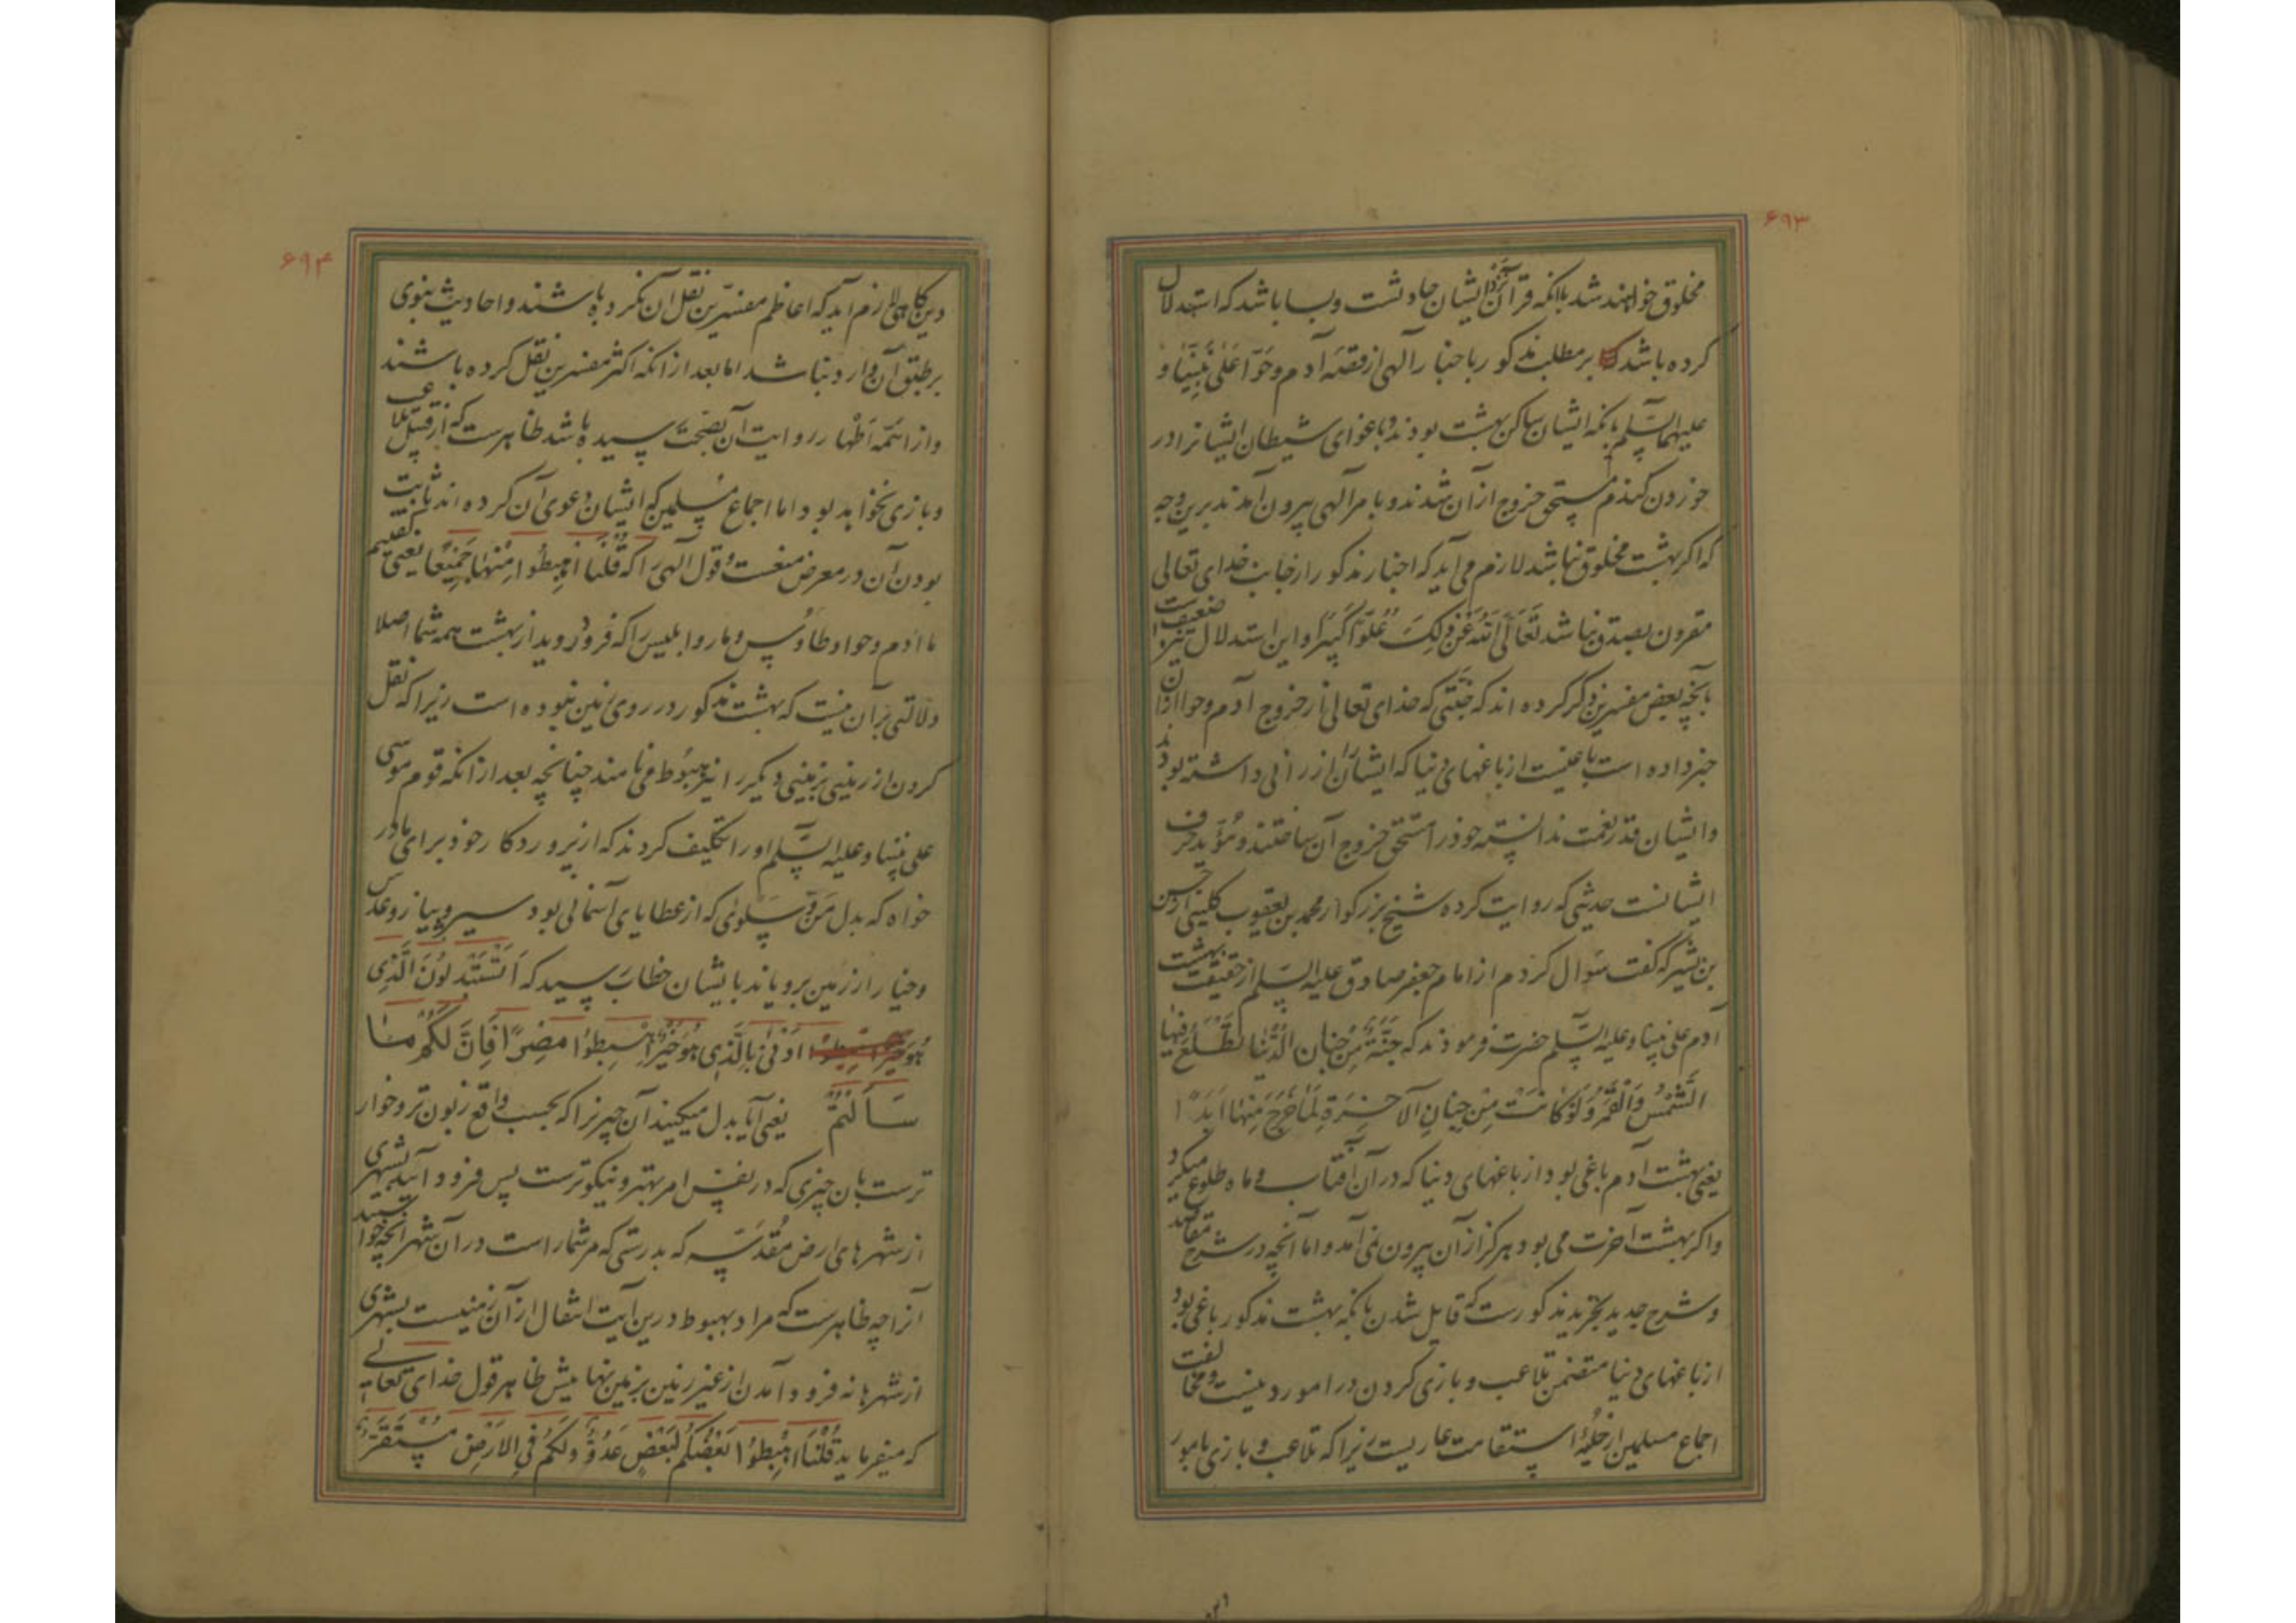 ۶۹۳
مخلوق خواهند شد باآنکه قرآن نزد ایشان حادثست و بسا باشد که استدلال
کرده باشد بر مطلب مذکور باخبار آلهی از قصّه آدم و حوّا عَلیٰ نَبِیِّنَا وَ
علیهما السّلم بانکه ایشان ساکن بهشت بودند و باغوای شیطان ایشانرا در
خوردن کندم مستحق خروج از آن شدند و بامر آلهی بیرون آمدند برین وجه
که اکر بهشت مخلوق نباشد لازم می آید که اخبار مذکور از جناب خدای تعالی
مقرون بصدق نباشد تَعَالَی اللهُ عَنْ ذٰلِکَ عُلُوّاً کَبِیْرًا و این استدلال ضعیفست
بآنچه بعض مفسرین ذکر کرده اند که جَنَّتی که خدای تعالی از خروج آدم و حوا از آن
خبر داده است باغیست از باغهای دنیا که ایشان را ارزانی داشته بودند
و ایشان قدر نعمت ندانسته خود را مستحق خروج آن ساختند و مُؤیّد حرف
ایشانست حدیثی که روایت کرده شیخ بزرکوار محمد بن یعقوب کلینی از حسن
بن بشیر که کفت سؤال کردم از امام جعفر صادق علیه السّلم از حقیقت بهشت
آدم علی نبینا و علیه السّلم حضرت فرمودند که جَنَّةٌ مِنْ جِنَانِ الدُّنْیَا تَطْلُعُ فِیْهَا
الشَّمْسُ وَالْقَمَرُ وَلَوْ کَانَتْ مِنْ جِنَانِ الآخِرَةِ لَمَا خَرَجَ مِنْهَا اَبَدًا
یعنی بهشت آدم باغی بود از باغهای دنیا که در آن آفتاب و ماه طلوع میکرد
و اکر بهشت آخرت می بود هرکز از آن بیرون نمی آمد و اما آنچه در شرح مقاصد
و شرح جدید تجرید مذکورست که قایل شدن بآنکه بهشت مذکور باغی بود
از باغهای دنیا متضمن تلاعب و بازی کردن در امور دینیست و مخالفت
اجماع مسلمین از حلیهٔ استقامت عاریست زیرا که تلاعب و بازی بامور
۶۹۴
دین کاهی لازم آید که اعاظم مفسّرین نقل آن نکرده باشند و احادیث نبوی
بر طبق آن وارد نباشد اما بعد از انکه اکثر مفسرین نقل کرده باشند
و از ائمّه اَطْهار روایت آن بصحّت رسیده باشد ظاهرست که از قبیل تلاعب
و بازی نخواهد بود اما اجماع مسلمین که ایشان دعوی آن کرده اند ثابت
بودن آن در معرض منعست و قول آلهی را که قُلْنَا اهْبِطُوا مِنْهَا جَمِیْعًا یعنی کفتیم
ما آدم و حوا و طاوُس و مار و ابلیس را که فرود روید از بهشت همه شما اصلا
دلالتی بر آن نیست که بهشت مذکور در روی زمین نبوده است زیرا که نقل
کردن از زمینی بزمینی دیکر را نیز هبُوط می نامند چنانچه بعد از آنکه قوم موسی
علی نبینا و علیه السّلم او را تکلیف کردند که از پروردکار خود برای ما در
خواه که بدل مَنّ و سَلوٰی که از عطایای آسمانی بود سیر و پیاز و عدس
و خیار از زمین برویاند بایشان خطاب رسید که اَتَسْتَبْدِلُوْنَ الَّذِی
هُوَ اَدْنیٰ بِالَّذِی هُوَ خَیْرٌ اهْبِطُوْا مِصْرًا فَاِنَّ لَکُمْ مٰا
سَاَلْتُمْ یعنی آیا بدل میکنید آن چیز را که بحسب واقع زبون تر و خوار
ترست بان چیزی که در نفس امر بهتر و نیکوترست پس فرود آیید بشهری
از شهرهای ارض مُقدّسَه که بدرستی که مر شما راست در آن شهر آنچه خواستید
آنرا چه ظاهرست که مراد بهبوط درین آیت انتقال از آن زمینست بشهری
از شهرها نه فرود آمدن از غیر زمین بزمین نهایتش ظاهر قول خدای تعالے
که میفرماید قُلْنَا اهْبِطُوا بَعْضُکُمْ لِبَعْضٍ عَدُوٌّ وَلَکُمْ فِی الاَرْضِ مُسْتَقَرٌّ